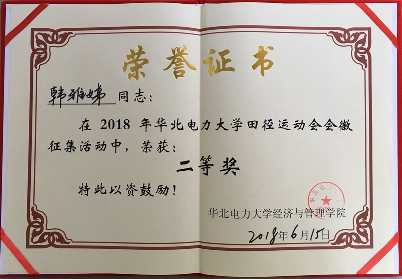 荣誉证书
韩雅娣 同志：
在 2018 年华北电力大学田径运动会会徽
征集活动中，荣获：
二等奖
特此以资鼓励！
华北电力大学经济与管理学院
2018年6月15日